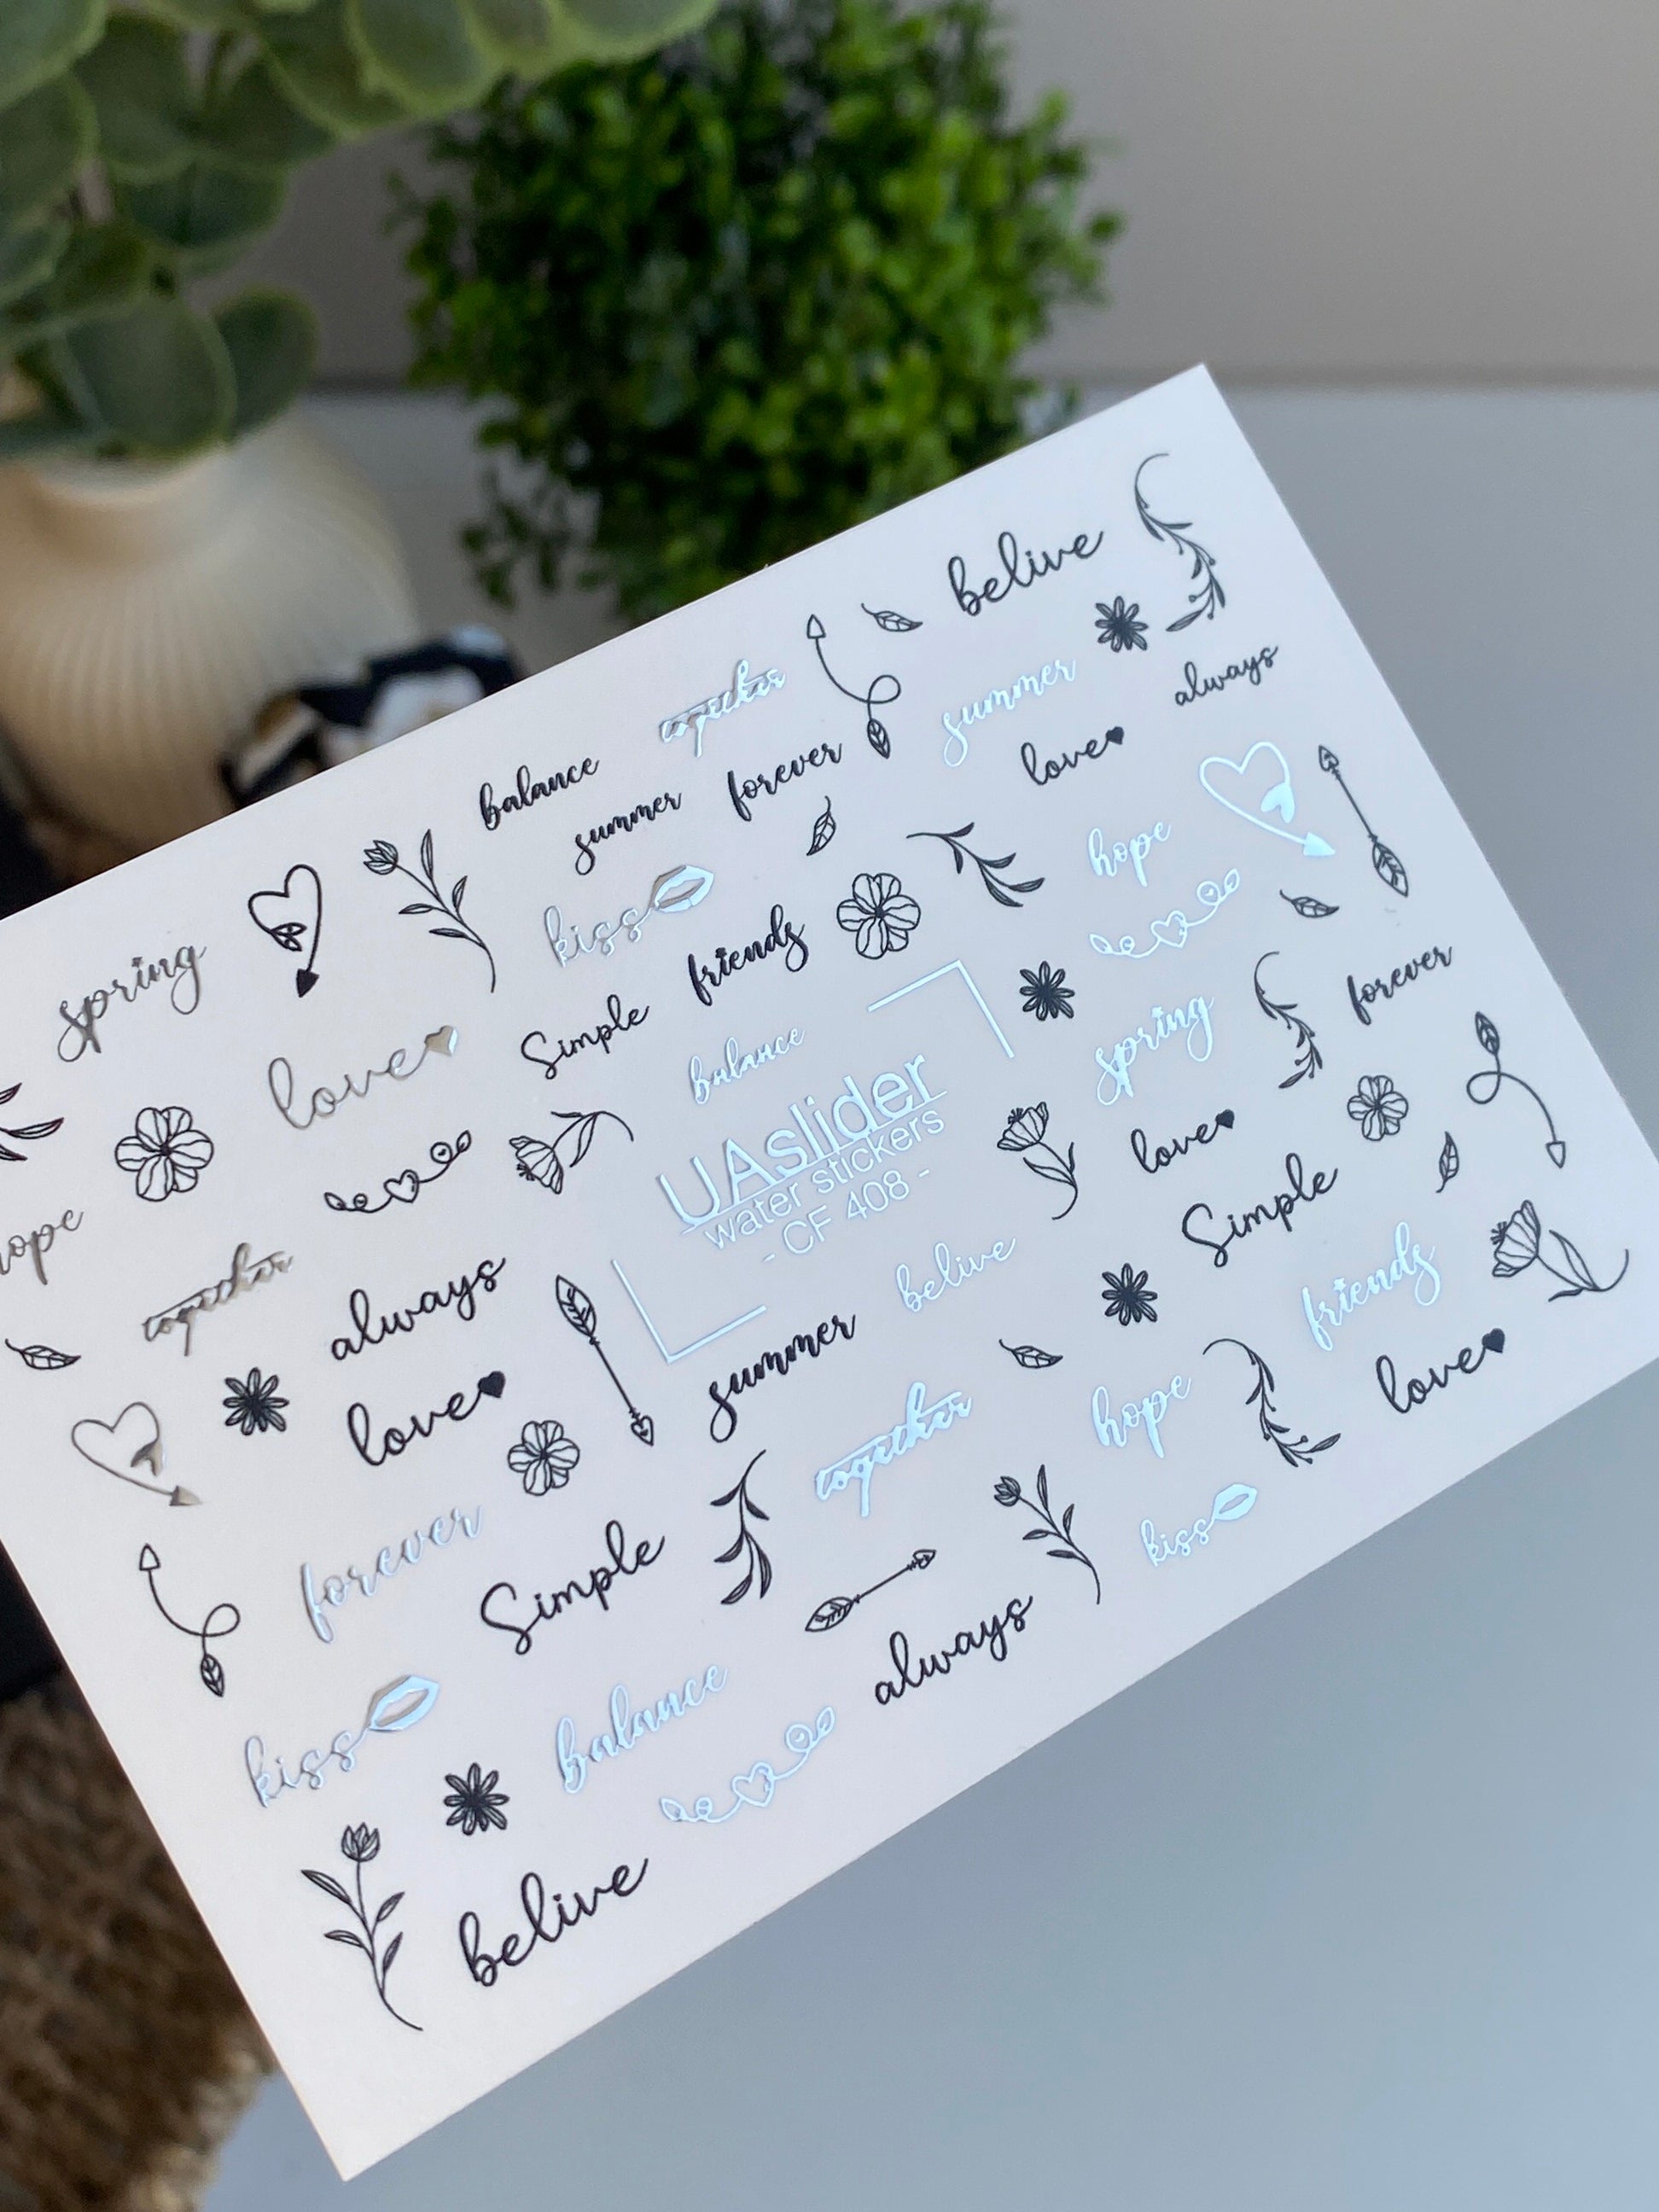 belive
together
summer
always
balance
forever
love
summer
hope
kiss
spring
friends
forever
Simple
love
balance
spring
UAslider
water stickers
- CF 408 -
love
Simple
hope
together
always
belive
friends
summer
love
love
together
hope
forever
Simple
kiss
always
kiss
balance
belive